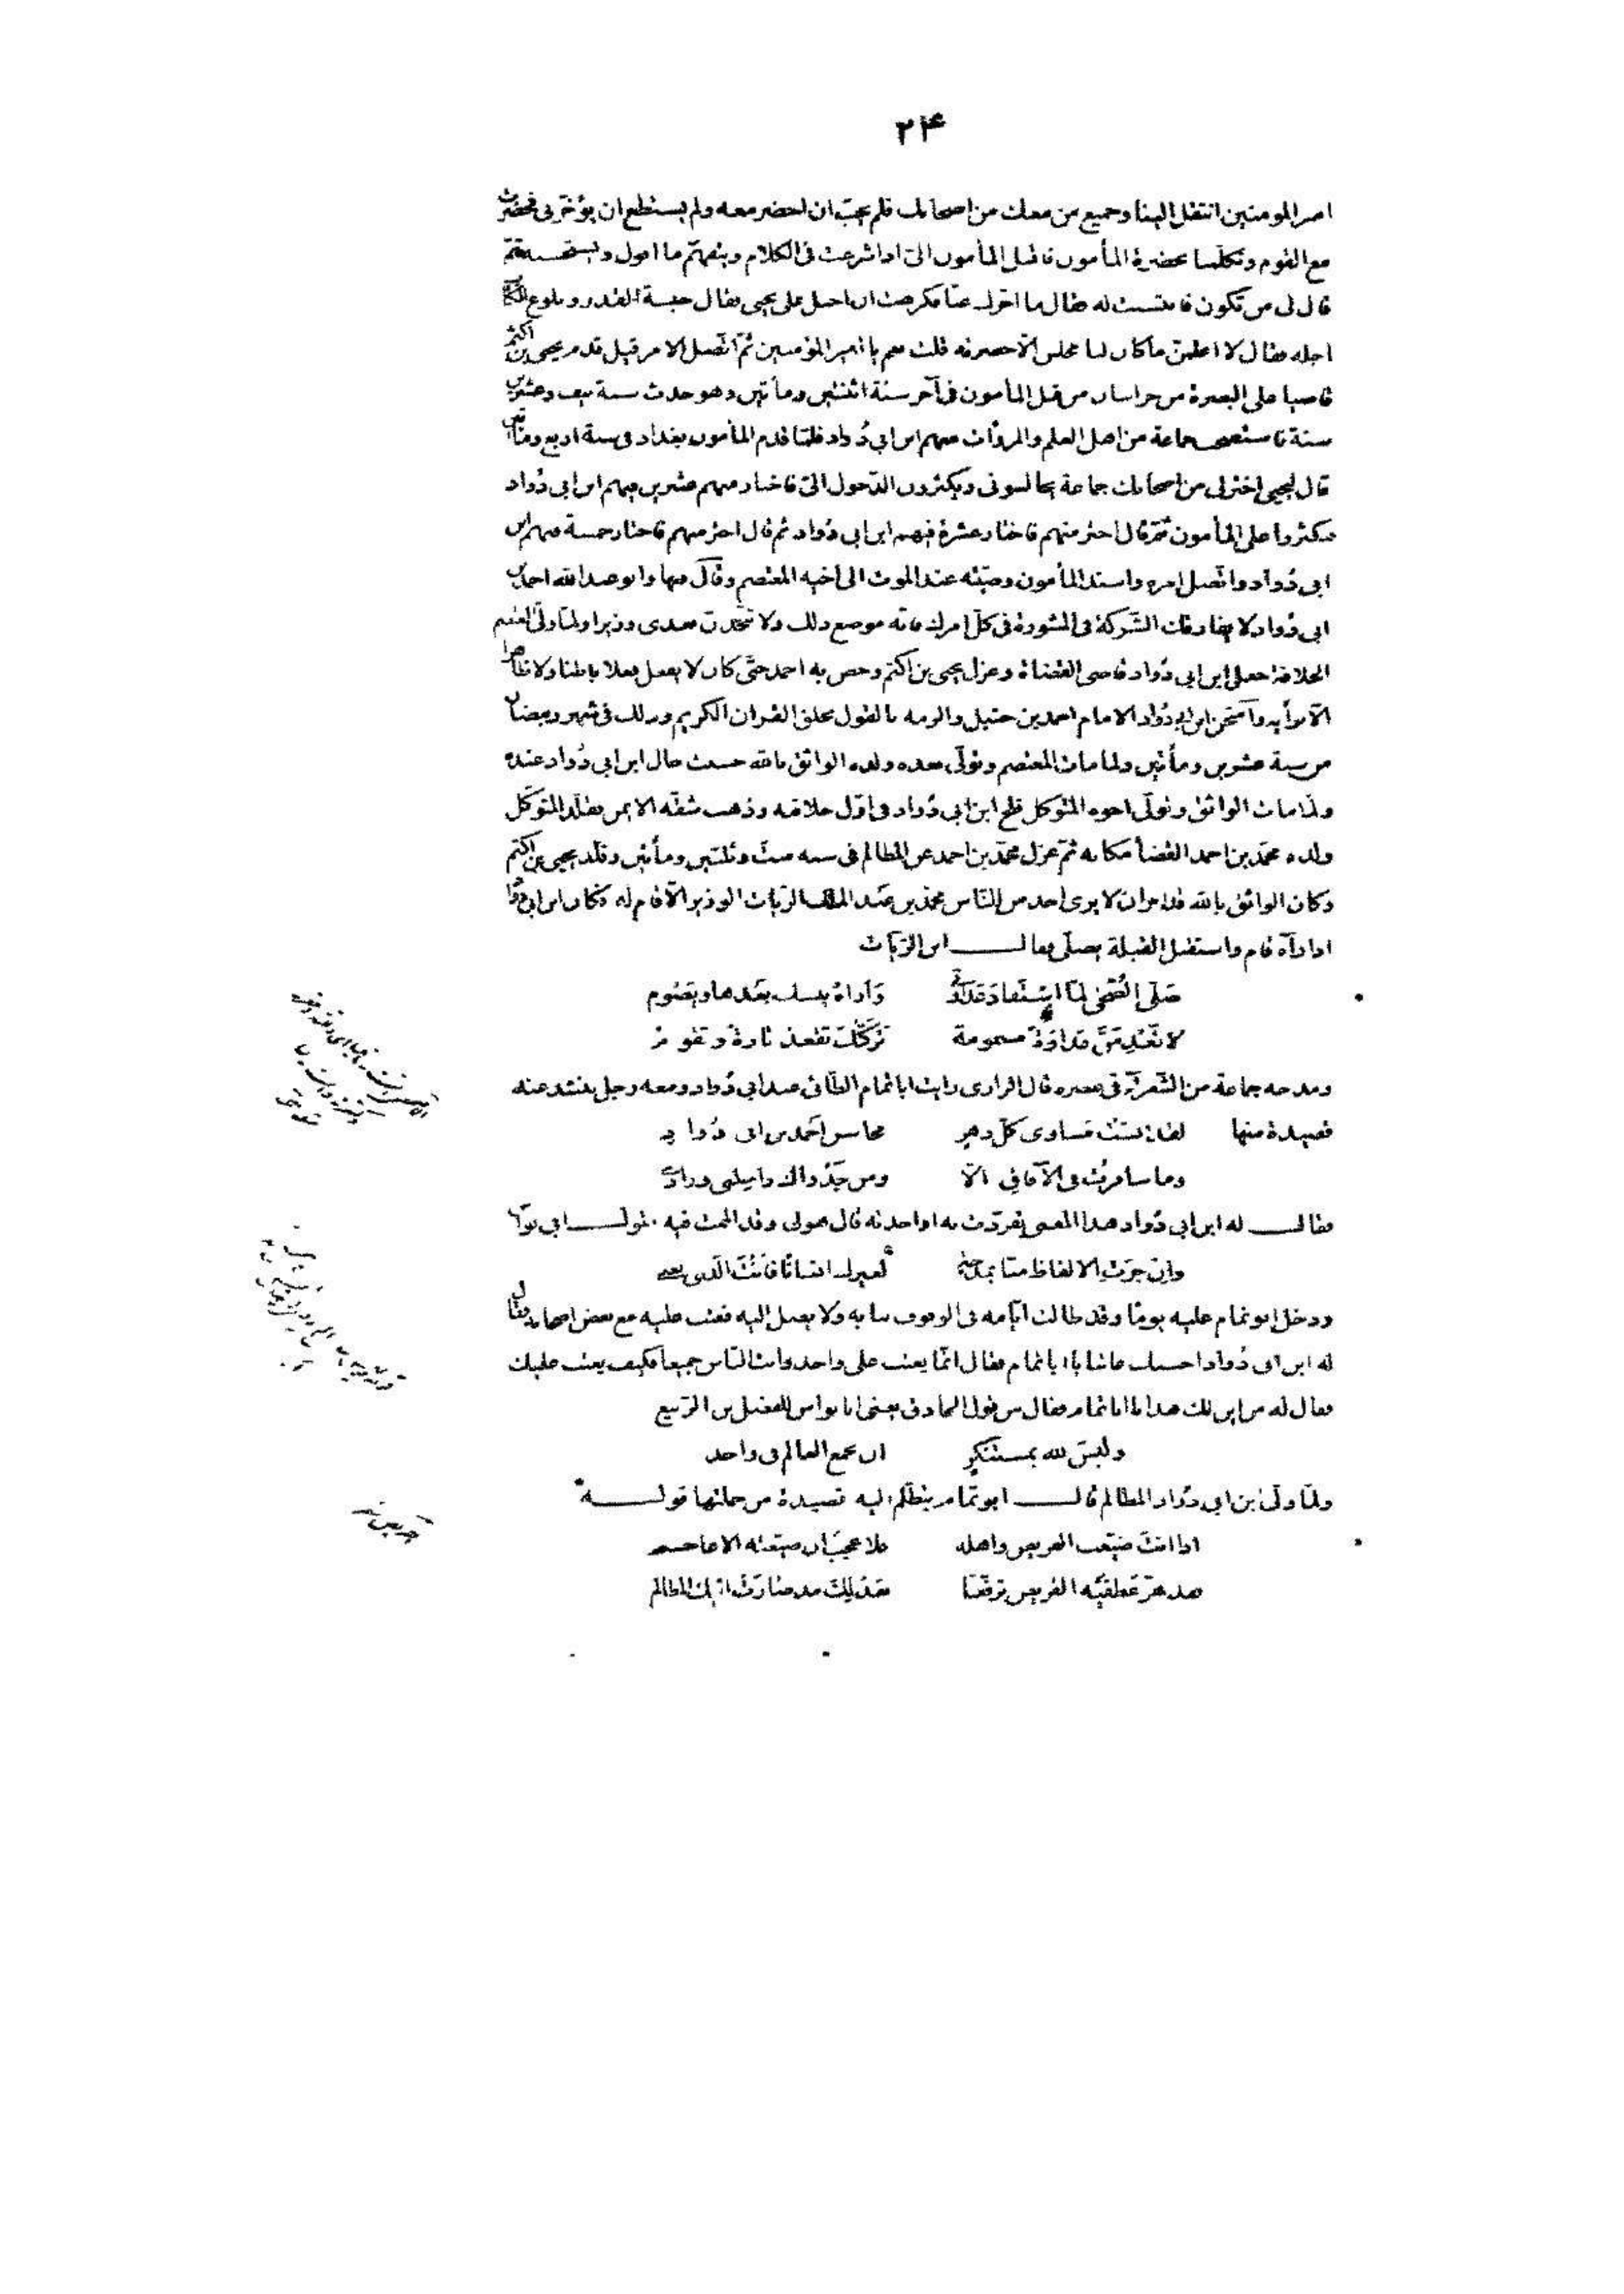 ۲۴
امير المومنين انتقل الينا وجميع من معك من اصحابك فلم يجب ان احضر معه ولم يستطع ان يؤخرنى فحضرت
مع القوم وتكلمنا بحضرة المأمون فاقبل المأمون الىّ اذا شرعت فى الكلام ويتفهم ما اقول ويستحسنه ثمّ
قال لى من تكون فانتسبت له فقال ما اخرك عنا فكرهت ان احيل على يحيى فقال حبسة القدر وبلوغ الكتاب
اجله فقال لا اعلمن ما كان لنا مجلس الّا حضرته قلت نعم يا امير المؤمنين ثمّ اتّصل الامر قيل قدم يحيى بن اكثم
قاضيا على البصرة من خراسان من قبل المأمون فى آخر سنة اثنتين ومأتين وهو حدث سنه نيف وعشرين
سنة فاستصحب جماعة من اهل العلم والمروّات منهم ابن ابى دُواد فلمّا قدم المأمون بغداد فى سنة اربع ومأتين
قال ليحيى اختر لى من اصحابك جماعة يجالسونى ويكثرون الدّخول الىّ فاختار منهم عشرين فيهم ابن ابى دُواد
فكثروا على المأمون ثمّ قال اختر منهم فاختار عشرة فيهم ابن ابى دُواد ثم قال اختر منهم فاختار خمسة فيهم ابن
ابى دُواد واتّصل امره واسند المأمون وصيّته عند الموت الى اخيه المعتصم وقال فيها وابو عبد الله احمد بن
ابى دُواد لا يفارقك الشّركة فى المشورة فى كلّ امرك فانّه موضع ذلك ولا تتّخذنّ بعدى وزيرا ولمّا ولّى المعتصم
الخلافة جعل ابن ابى دُواد قاضى القضاة وعزل يحيى بن اكثم وخص به احمد حتّى كان لا يفعل فعلا باطنا ولا ظاهرا
الّا برأيه وامتحن ابن ابى دُواد الامام احمد بن حنبل والزمه بالقول بخلق القران الكريم وذلك فى شهر رمضان
من سنة عشرين ومأتين ولما مات المعتصم وتولّى بعده ولده الواثق بالله حسنت حال ابن ابى دُواد عنده
ولمّا مات الواثق وتولّى اخوه المتوكل فلج ابن ابى دُواد فى اوّل خلافته وذهب شقّه الايمن فقلّد المتوكّل
ولده محمّد بن احمد القضأ مكانه ثمّ عزل محمّد بن احمد عن المظالم فى سنه ستّ وثلثين ومأتين وقلّد يحيى بن اكثم
وكان الواثق بالله قد امر ان لا يرى احد من النّاس محمّد بن عبد الملك الزيّات الوزير الّا قام له فكان ابن ابى دُواد
اذا رآه قام واستقبل القبلة يصلّى فقال ابن الزيّات
صَلّى الضُّحى لمّا استَفادَ عَداوَتى وَاَراهُ ينسك بَعدَها ويَصُوم
لا تَعْدِمَنَّ عَداوَةً مسمومة تَرَكَتْكَ تقعد تارة وتقوم
ومدحه جماعة من الشّعرآء فى عصره قال الرازى رايت ابا تمام الطّائى عند ابى دُواد ومعه رجل ينشد عنه
قصيدة منها لقد انسَتْ مَساوى كلّ دهرٍ محاسن اَحمَد بن ابى دُوادِ
وما سافرتُ فى الآفاقِ الّا ومن جَدْواك راحلتى وزادى
فقال له ابن ابى دُواد هذا المعنى تفرّدت به او اخذته قال هو لى وقد الممت فيه بقول ابى نوّاس
واِن جَرَتِ الالفاظ منّا بمدحةٍ لغيرك انسانًا فَاَنْتَ الّذى نعنى
ودخل ابو تمام عليه يومًا وقد طالت ايّامه فى الوقوف ببابه ولا يصل اليه فعتب عليه مع بعض اصحابه فقال
له ابن ابى دُواد احسبك عاتبا يا ابا تمام فقال انّما يعتب على واحد وانت النّاس جميعا فكيف يعتب عليك
فقال له من اين لك هذا يا ابا تمام فقال من قول الحاذق يعنى ابا نواس للفضل بن الرّبيع
وليسَ لله بمستنكرٍ ان يجمع العالم فى واحد
ولمّا ولّى ابن ابى دُواد المظالم قال ابو تمّام يتظلّم اليه قصيدة من جملتها قوله
اذا انتَ ضيّعت القريض واهله فلا عجبَ ان ضيّعته الاعاجم
فقد هزّ عطفَيْه القريض ترفّعًا بعَدْلِكَ مذ صارَتْ اليك المظالم